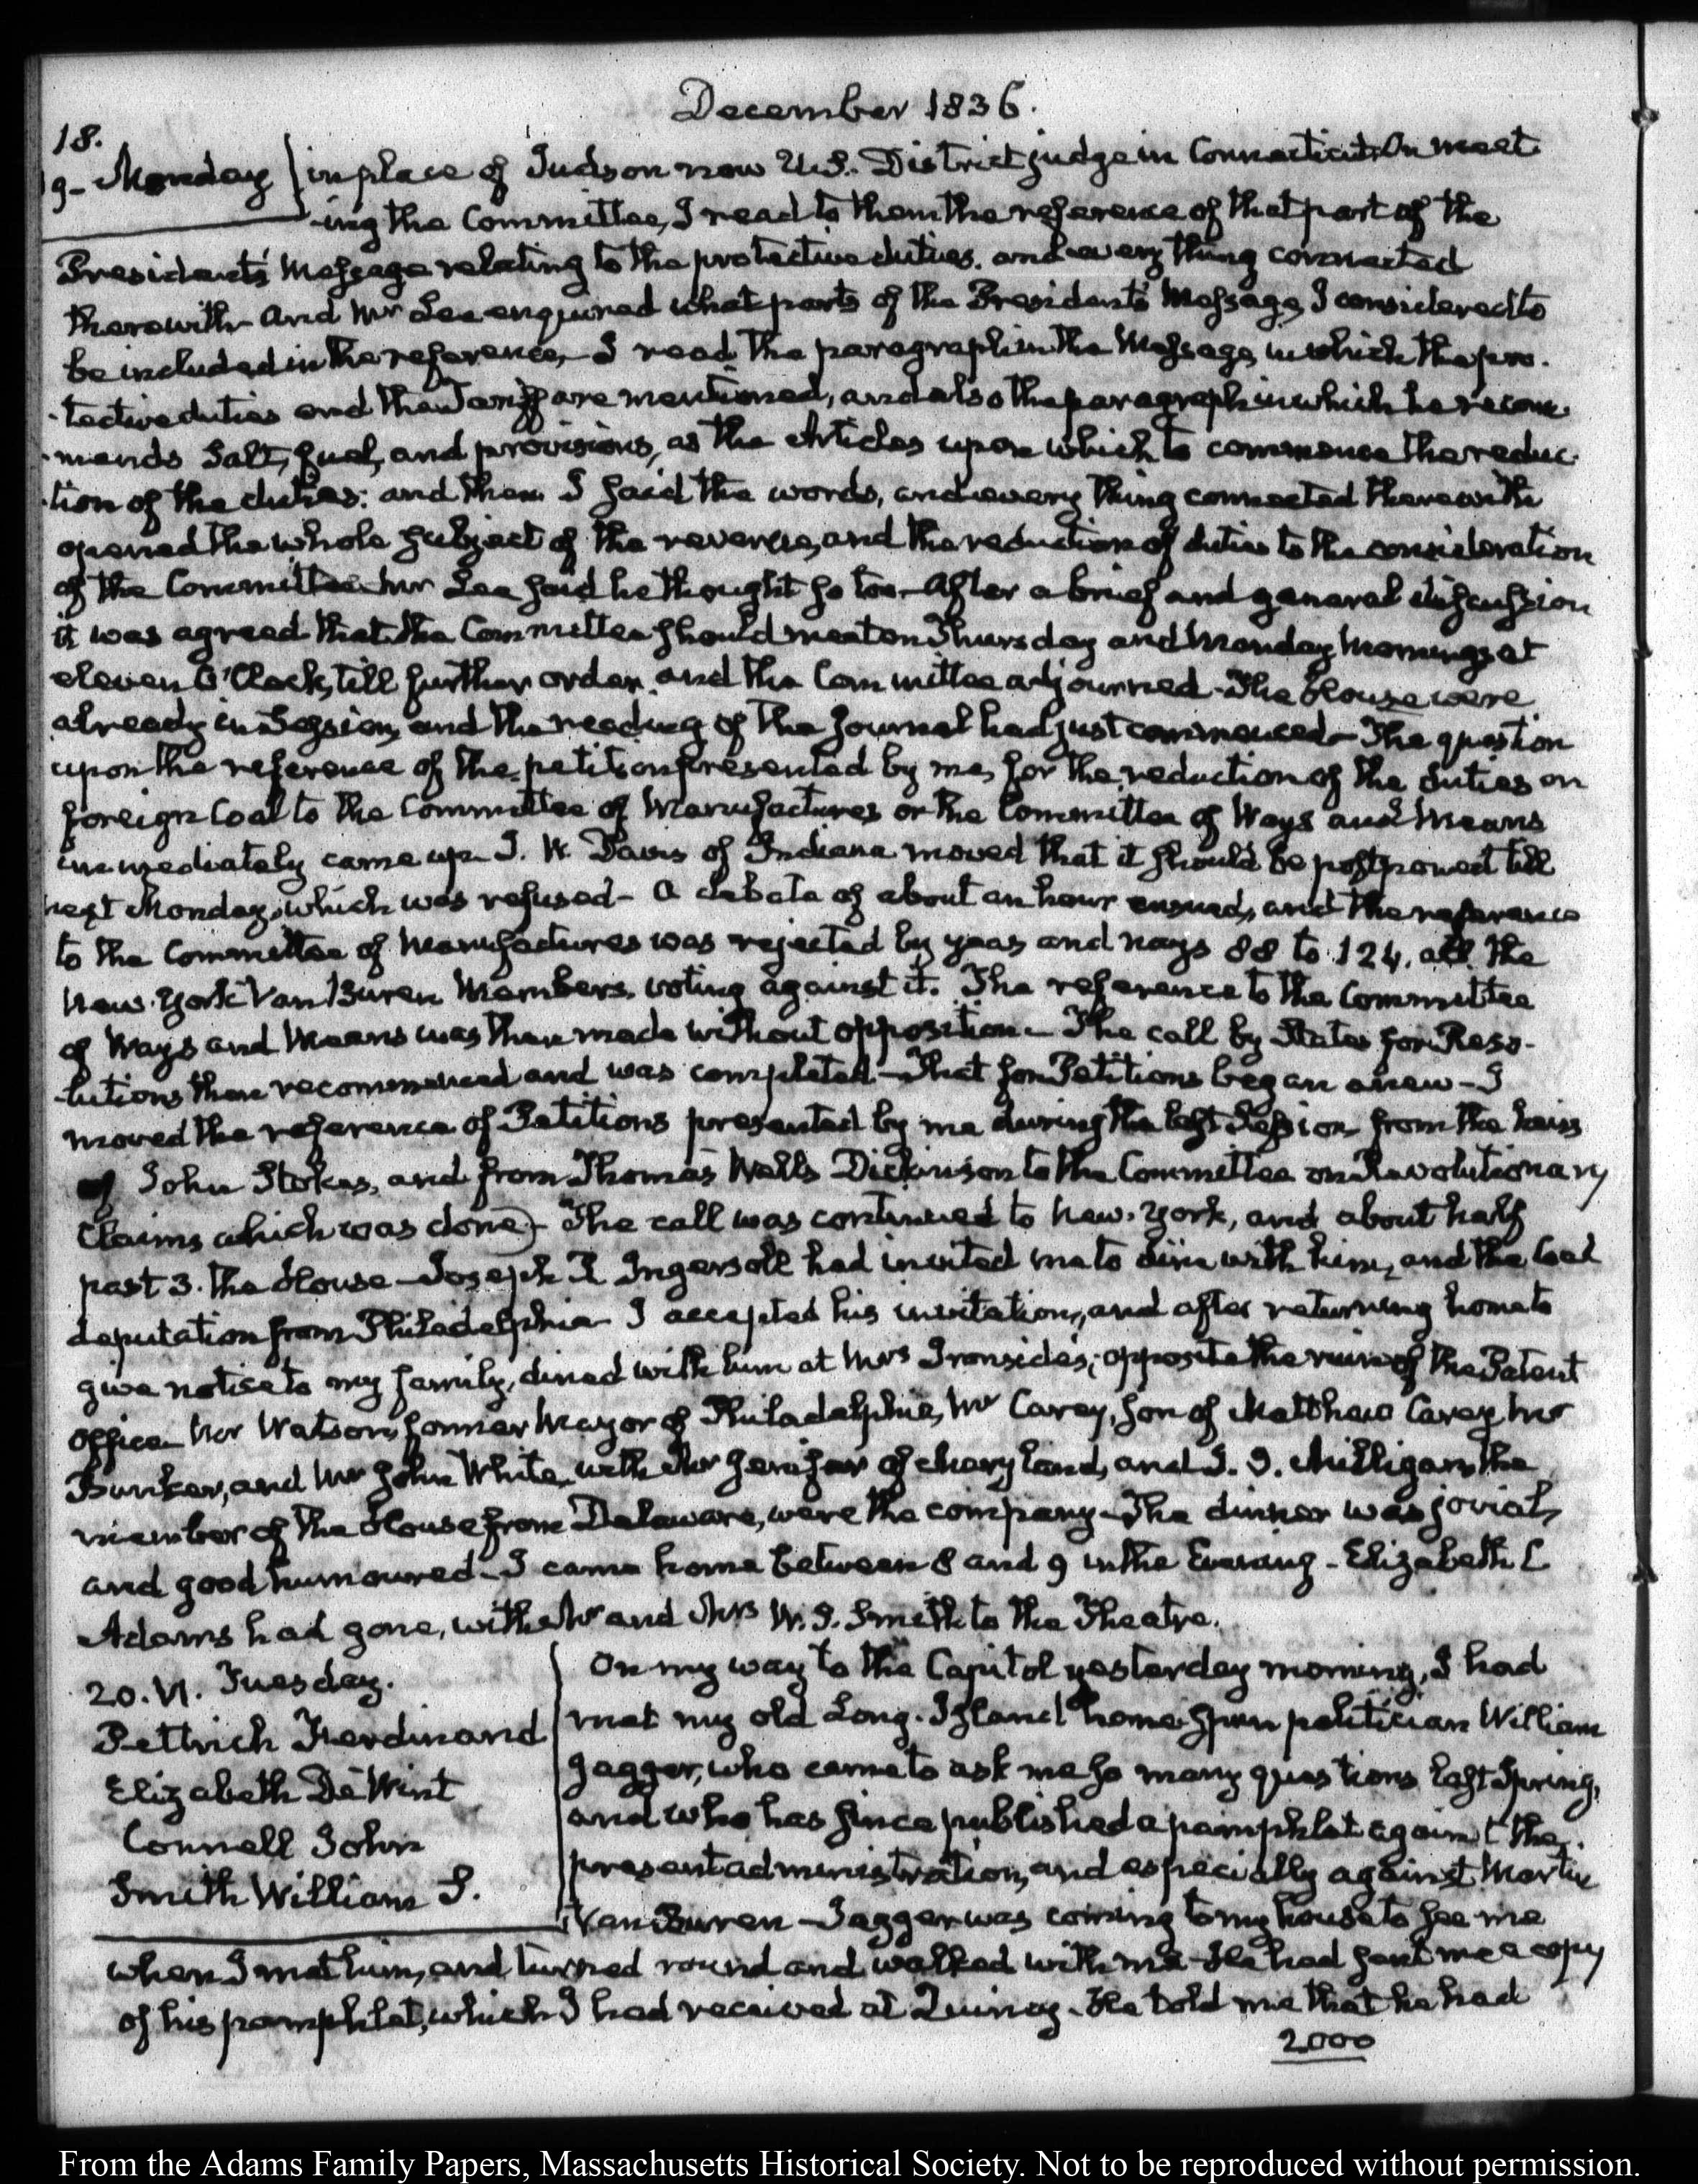 December 1836.
18.
19- Monday in place of Judson now U.S. District judge in Connecticut. On meet
-ing the Committee, I read to them the reference of that part of the
President's Message relating to the protective duties. and every thing connected
therewith and Mr Lee enquired what parts of the President's Message, I considered to
be included in the reference, I read the paragraph in the Message, in which the pro-
-tective duties and the Tariff are mentioned, and also the paragraph in which he recom-
-mends Salt, fuel, and provisions, as the Articles upon which to commence the reduc-
-tion of the duties: and then I said the words, and every thing connected therewith
opened the whole subject of the revenue, and the reduction of duties to the consideration
of the Committee. Mr Lee said he thought so too. After a brief and general discussion
it was agreed that the Committee should meet on Thursday and Monday Mornings at
eleven O'Clock, till further order, and the Committee adjourned. The House were
already in Session, and the reading of the Journal had just commenced. The question
upon the reference of the petition presented by me, for the reduction of the duties on
foreign Coal to the Committee of Manufactures or the Committee of Ways and Means
immediately came up. J. W. Davis of Indiana moved that it should be postponed till
next Monday, which was refused- a debate of about an hour ensued, and the reference
to the Committee of Manufactures was rejected by yeas and nays 88 to 124. all the
New-York Van Buren Members, voting against it. The reference to the Committee
of Ways and Means was then made without opposition. The call by States for Reso-
-lutions then recommenced and was completed. That for Petitions began anew- I
moved the reference of Petitions presented by me during the last Session from the heirs
of John Stokes, and from Thomas Wells Dickinson to the Committee on Revolutionary
Claims which was done)- The call was continued to New-York, and about half
past 3. the House- Joseph R Ingersoll had invited me to dine with him, and the Coal
deputation from Philadelphia. I accepted his invitation, and after returning home to
give notice to my family, dined with him at Mrs Ironside's; opposite the ruins of the Patent
Office. Mr Watson, former Mayor of Philadelphia, Mr Carey, son of Matthew Carey Mr
Bunker, and Mr John White, with Mr Jenifer of Maryland, and J. J. Milligan the
member of the House from Delaware, were the company. The dinner was jovial,
and good humoured- I came home between 8 and 9 in the Evening- Elizabeth C
Adams had gone, with Mr and Mrs W. S. Smith to the Theatre.
20. VI. Tuesday.
Pettrich Ferdinand
Elizabeth De Wint
Connell John
Smith William S.
On my way to the Capitol yesterday morning, I had
met my old Long-Island home-spun politician William
Jagger, who came to ask me so many questions last Spring,
and who has since published a pamphlet against the
present administration, and especially against Martin
Van Buren- Jagger was coming to my house to see me
when I met him, and turned round and walked with me. He had sent me a copy
of his pamphlet, which I had received at Quincy. He told me that he had
2000
From the Adams Family Papers, Massachusetts Historical Society. Not to be reproduced without permission.